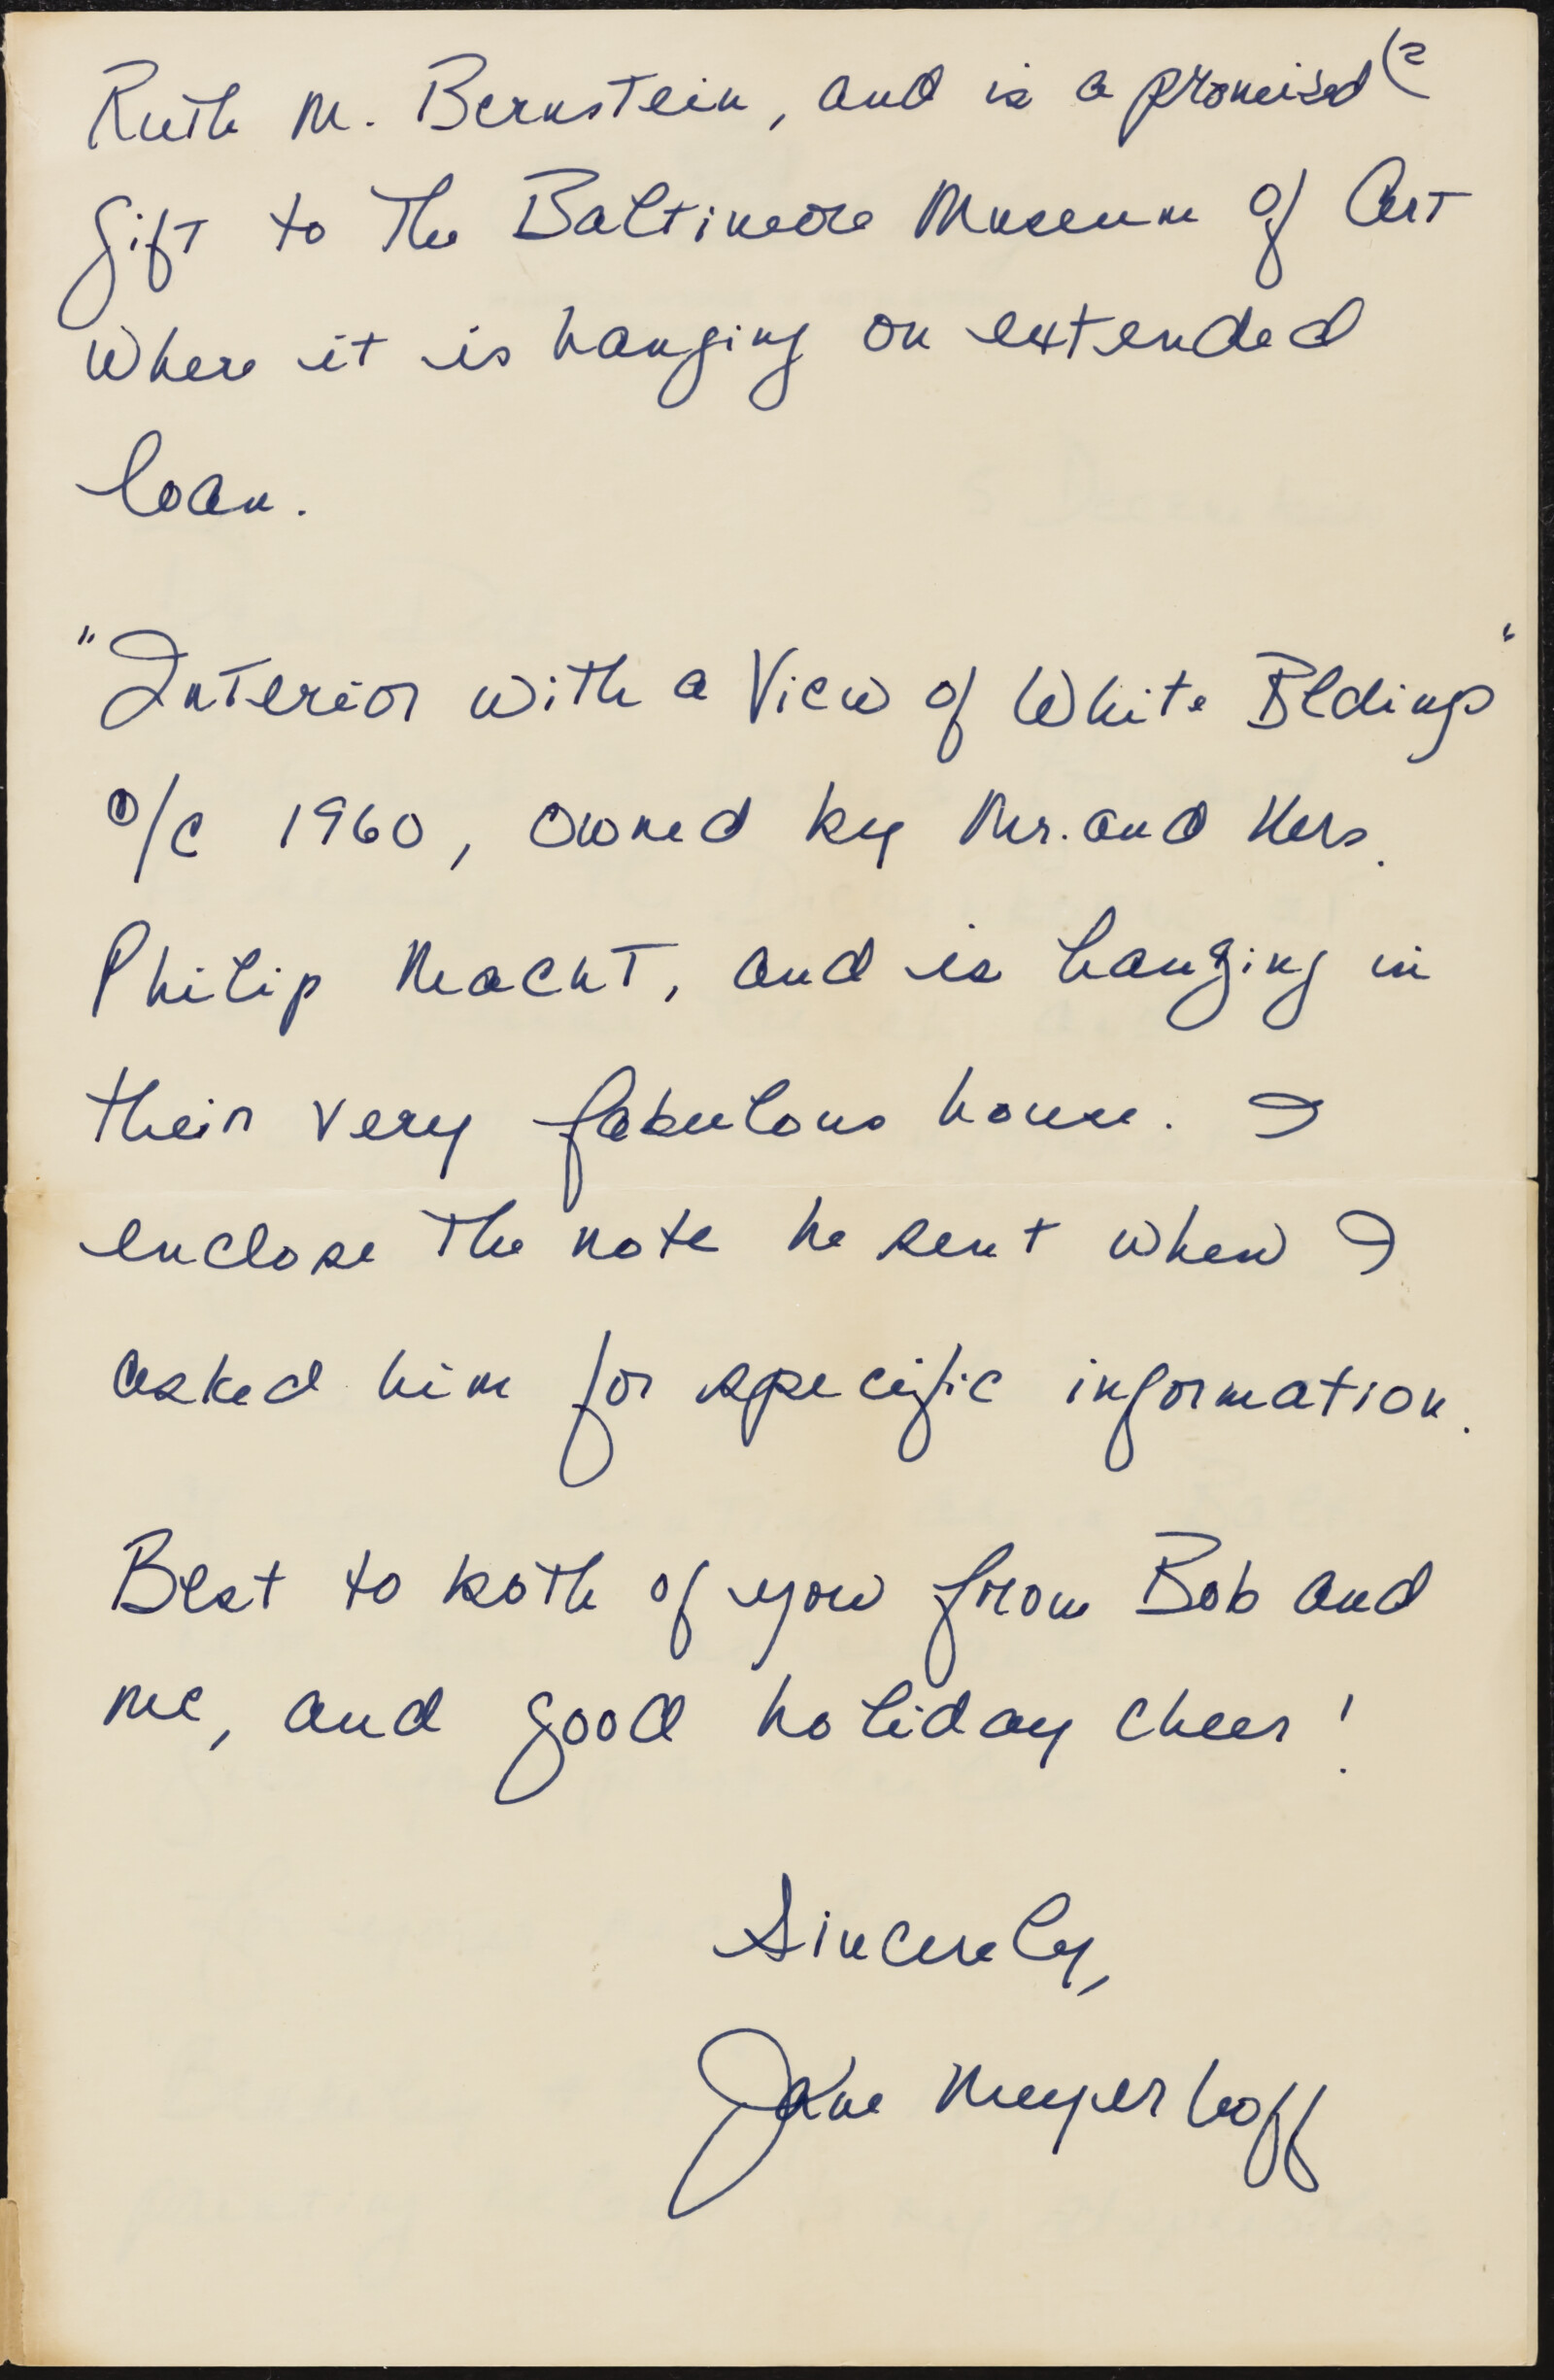 (2
Ruth M. Bernstein, and is a promised
gift to the Baltimore Museum of Art
where it is hanging on extended
loan.
"Interior with a View of White Bldings"
o/c 1960, owned by Mr. and Mrs.
Philip Macht, and is hanging in
their very fabulous house. I
enclose the note he sent when I
asked him for specific information.
Best to both of you from Bob and
me, and good holiday cheer!
Sincerely,
Jane Meyerhoff